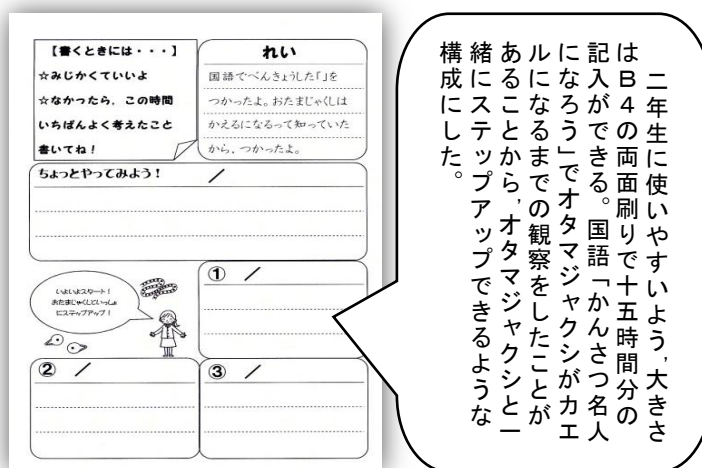 【書くときには・・・】
☆みじかくていいよ
☆なかったら，この時間
いちばんよく考えたこと
書いてね！
れい
国語でべんきょうした「」を
つかったよ。おたまじゃくしは
かえるになるって知っていた
から，つかったよ。
ちょっとやってみよう！ ／
いよいよスタート！
おたまじゃくしといっしょ
にステップアップ！
① ／
② ／
③ ／
二年生に使いやすいよう，大きさ
はＢ４の両面刷りで十五時間分の
記入ができる。国語「かんさつ名人
になろう」でオタマジャクシがカエ
ルになるまでの観察をしたことが
あることから，オタマジャクシと一
緒にステップアップできるような
構成にした。